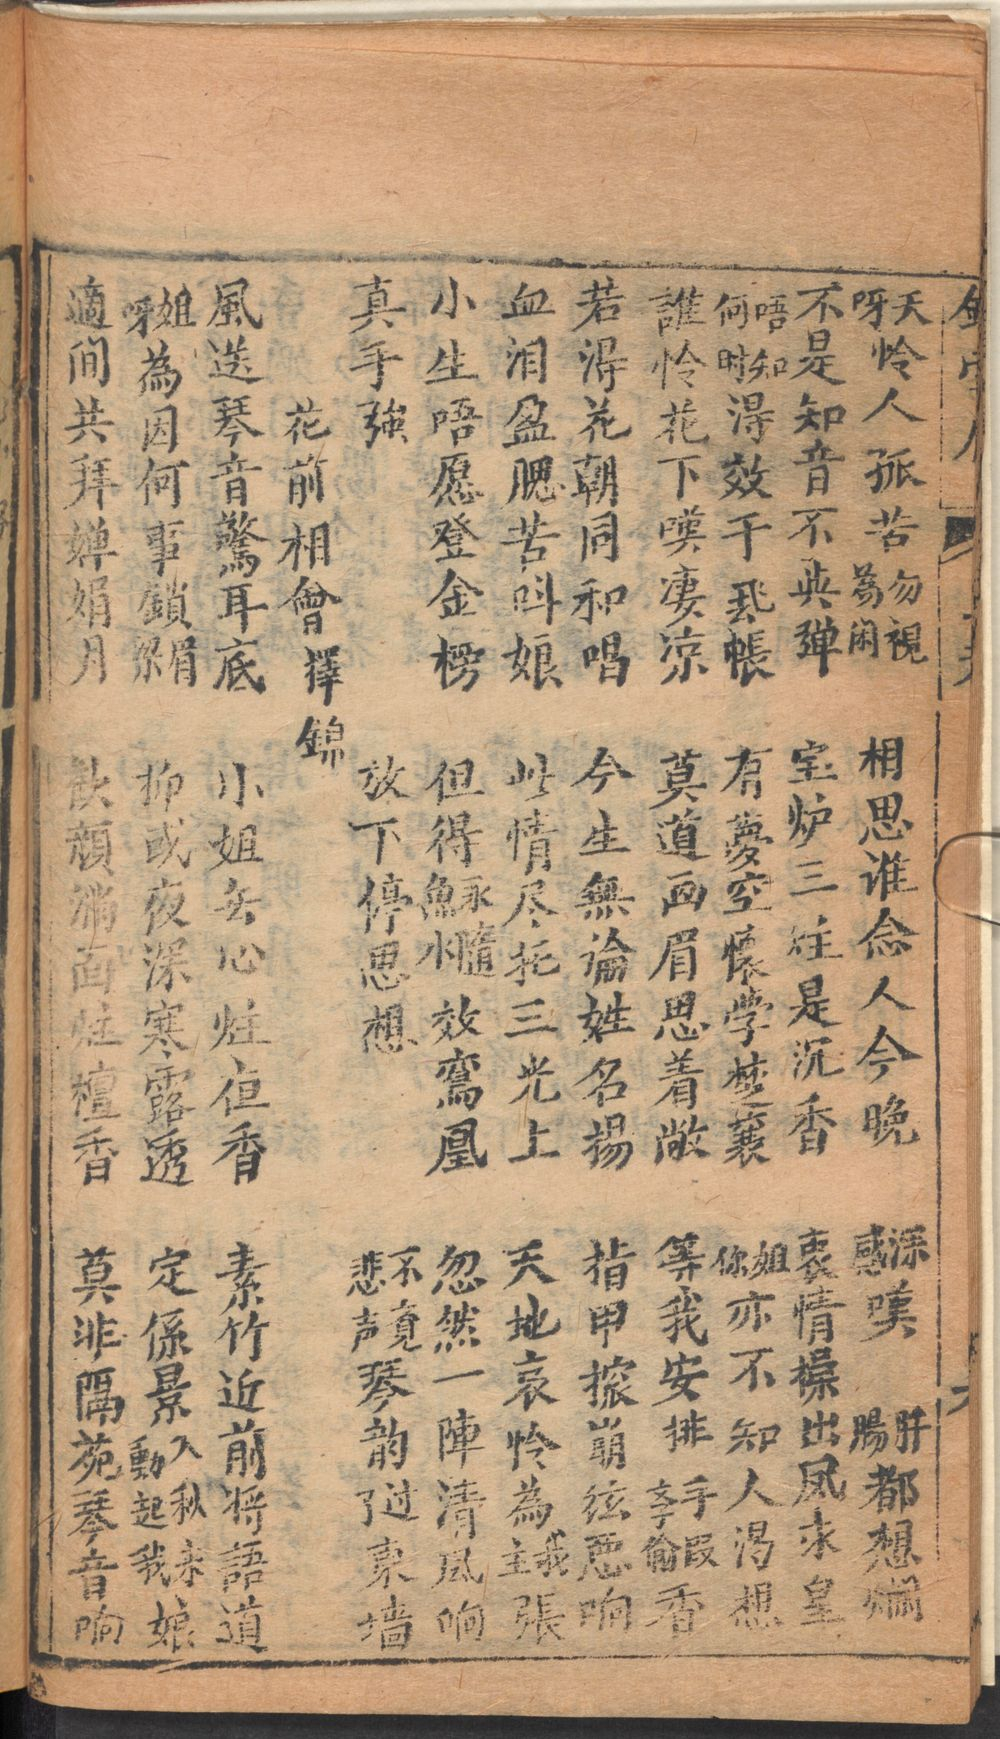 天呀怜人孤苦勿視為閑 相思谁念人今晚 添感嘆 肝腸都想爛
不是知音不與弹 宝炉三炷是沉香 衷情操出凤求皇
唔知何时淂效干飛帳 有夢空懷学楚襄 姐你亦不知人渴想
誰怜花下嘆凄凉 莫道画眉思着敞 等我安排手段去偷香
若淂花朝同和唱 今生無論姓名揚 指甲摋崩弦悪响
血泪盈腮苦呌娘 此情尽托三光上 天地哀怜為我主張
小生唔愿登金榜 但得魚水永隨效鸞凰 忽然一陣清风响
真手強 放下停思想 不竟悲声琴韵过了東墻
花前相會擇錦
風送琴音驚耳底 小姐無心炷夜香 素竹近前将語道
姐呀為因何事鎖眉梁 抑或夜深寒露透 定係景入秋来動起我娘
適间共拜婵娟月 歓顏満面炷檀香 莫非隔苑琴音响